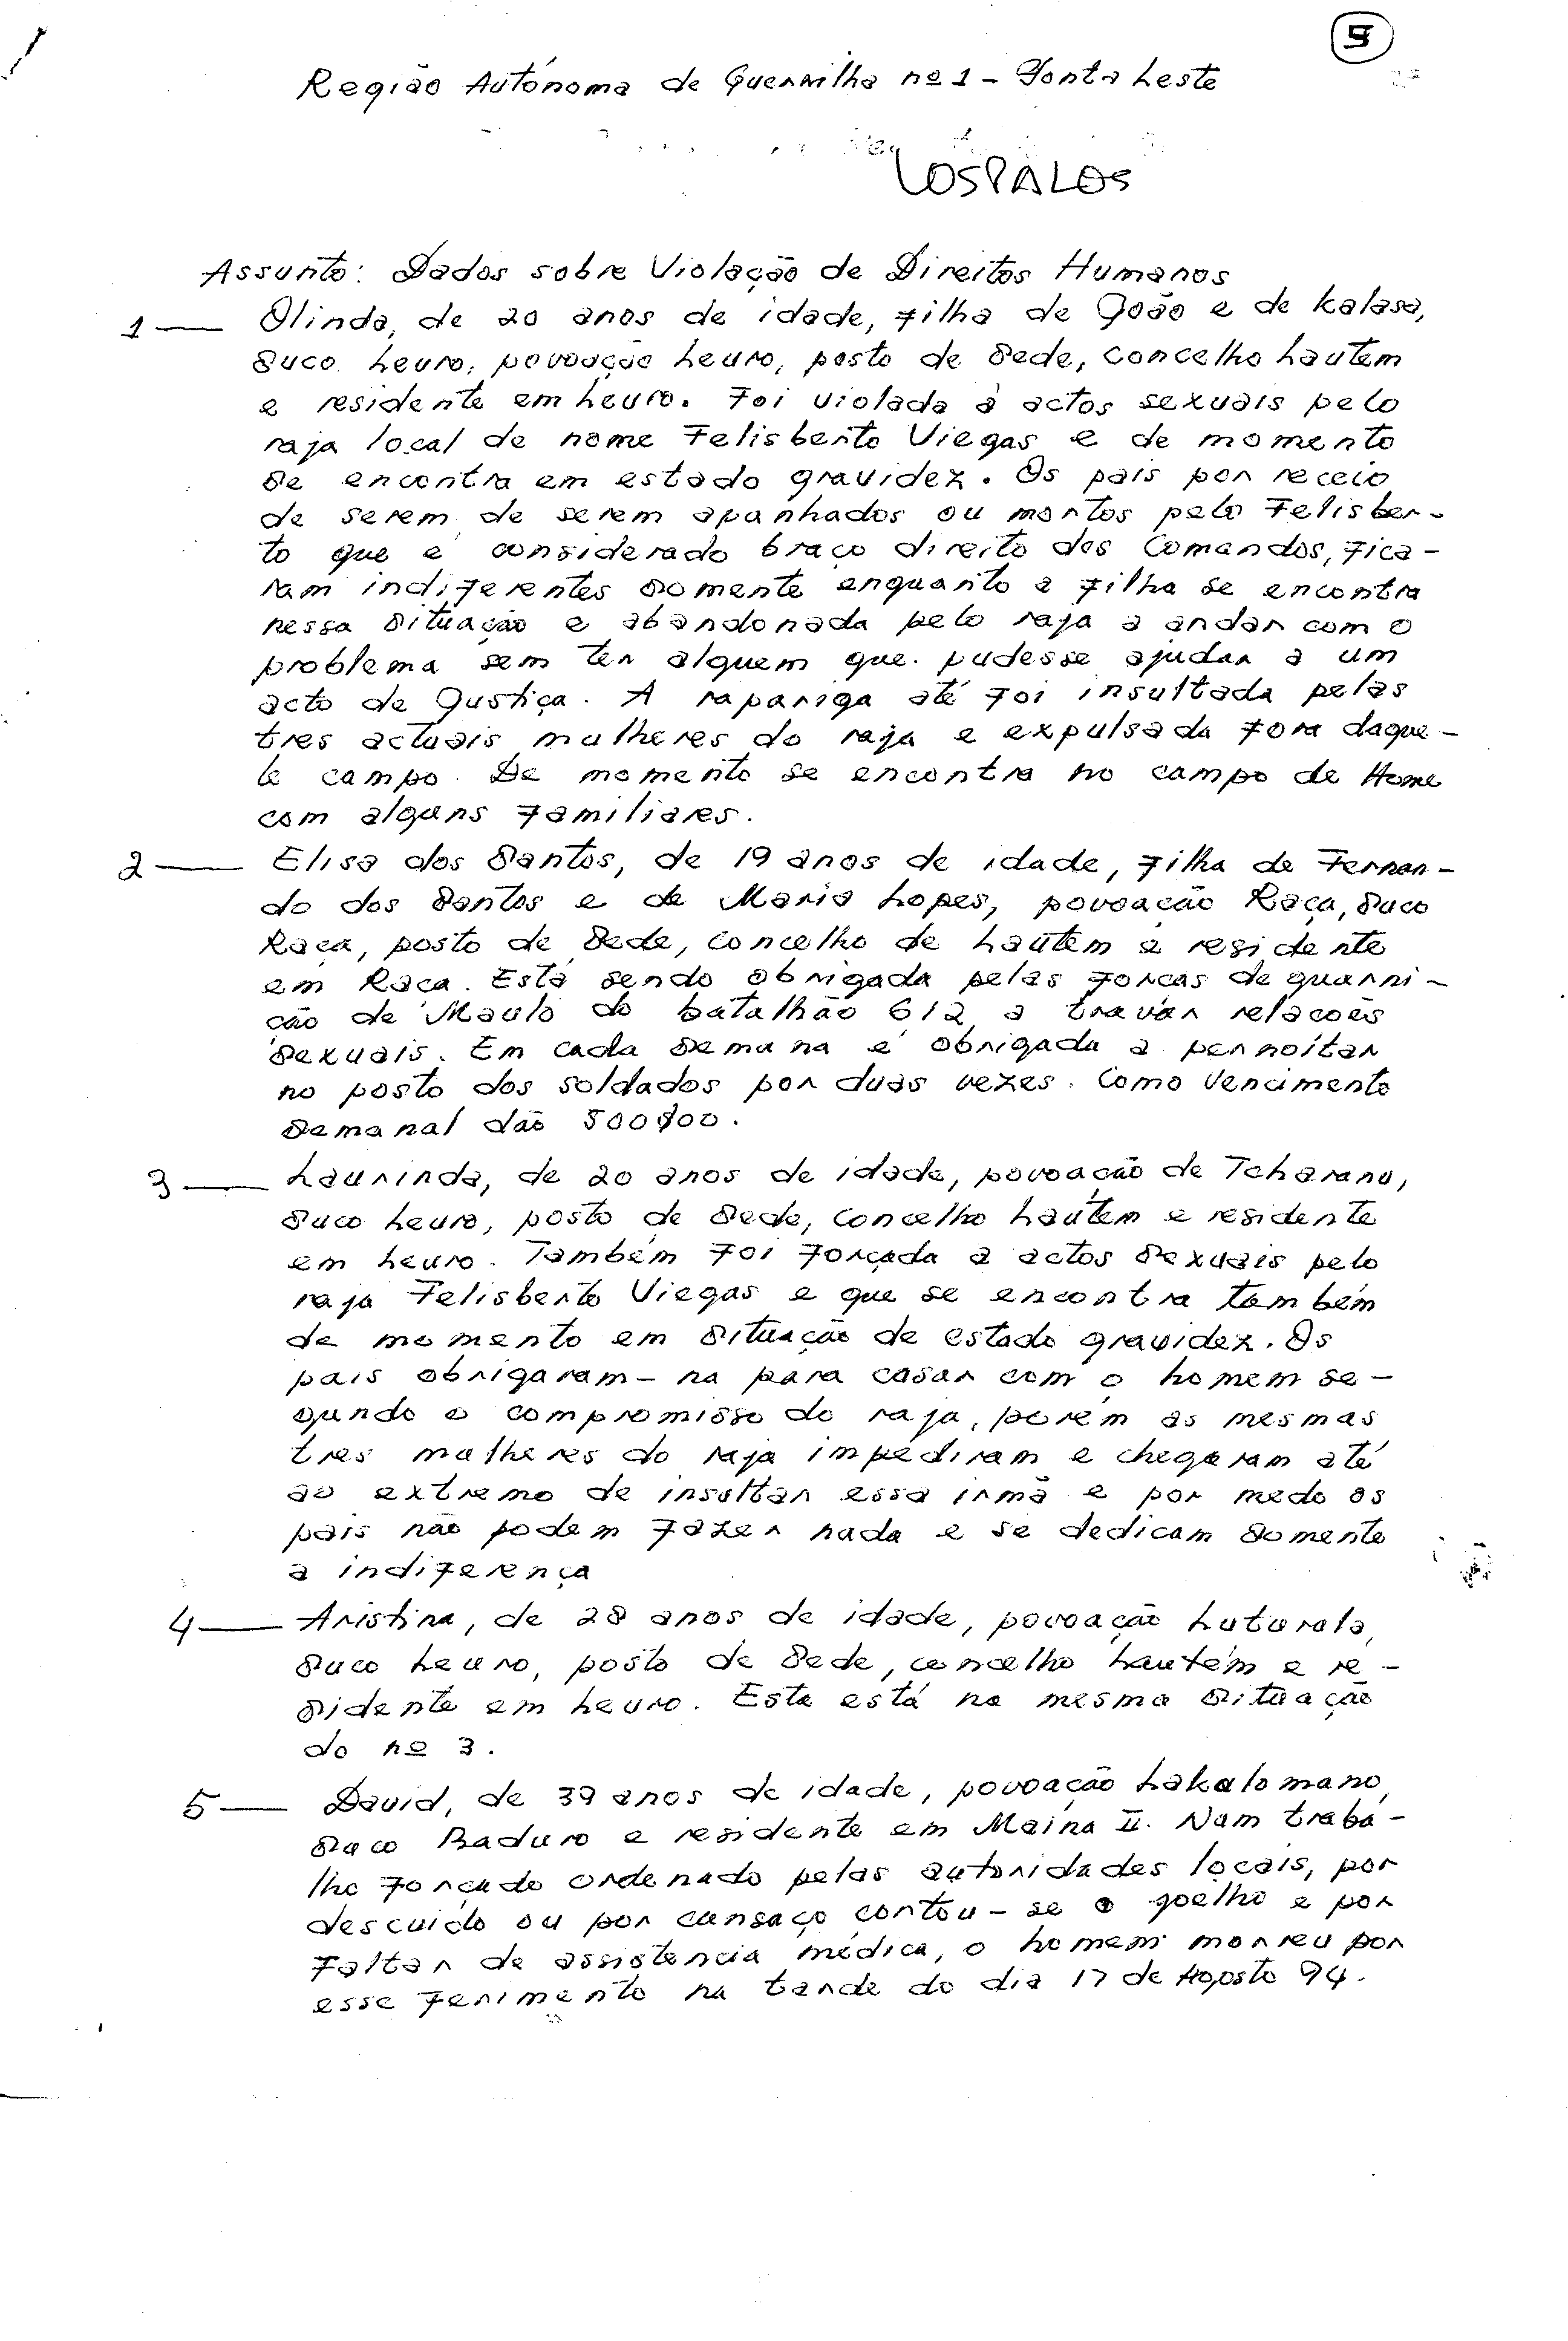 5
Região Autónoma de Guerrilha nº 1 - Ponta Leste
LOSPALOS
Assunto: Dados sobre Violação de Direitos Humanos
1 — Olinda, de 20 anos de idade, filha de João e de Kalasa,
Suco Leuro, povoação Leuro, posto de Sede, concelho Lautem
e residente em Leuro. Foi violada à actos sexuais pelo
raja local de nome Felisberto Viegas e de momento
se encontra em estado gravidez. Os pais por receio
de serem de serem apanhados ou mortos pelo Felisber-
to que é considerado braço direito dos Comandos, fica-
ram indiferentes somente enquanto a filha se encontra
nessa situação e abandonada pelo raja a andar com o
problema sem ter alguem que pudesse ajudar a um
acto de Justiça. A rapariga até foi insultada pelas
tres actuais mulheres do raja e expulsada fora daque-
le campo. De momento se encontra no campo de Home
com alguns familiares.
2 — Elisa dos Santos, de 19 anos de idade, filha de Fernan-
do dos Santos e de Maria Lopes, povoação Raça, Suco
Raça, posto de Sede, concelho de Lautem e residente
em Raça. Está sendo obrigada pelas forças de guarni-
ção de Maulo do batalhão 612 a travar relações
sexuais. Em cada semana é obrigada a pernoitar
no posto dos soldados por duas vezes. Como vencimento
semanal dão 500$00.
3 — Laurinda, de 20 anos de idade, povoação de Tcharanu,
Suco Leuro, posto de Sede, Concelho Lautem e residente
em Leuro. Também foi forçada a actos sexuais pelo
raja Felisberto Viegas e que se encontra também
de momento em situação de estado gravidez. Os
pais obrigaram-na para casar com o homem se-
gundo o compromisso do raja, porém as mesmas
tres mulheres do raja impediram e chegaram até
ao extremo de insultar essa irmã e por medo os
pais não podem fazer nada e se dedicam somente
a indiferença
4 — Aristina, de 28 anos de idade, povoação Luturala,
Suco Leuro, posto de Sede, concelho Lautém e re-
sidente em Leuro. Esta está na mesma situação
do nº 3.
5 — David, de 39 anos de idade, povoação Lakalomano,
Suco Baduro e residente em Maina II. Num traba-
lho forçado ordenado pelas autoridades locais, por
descuido ou por cansaço cortou-se o joelho e por
faltar de assistencia médica, o homem morreu por
esse ferimento na tarde do dia 17 de Agosto 94.